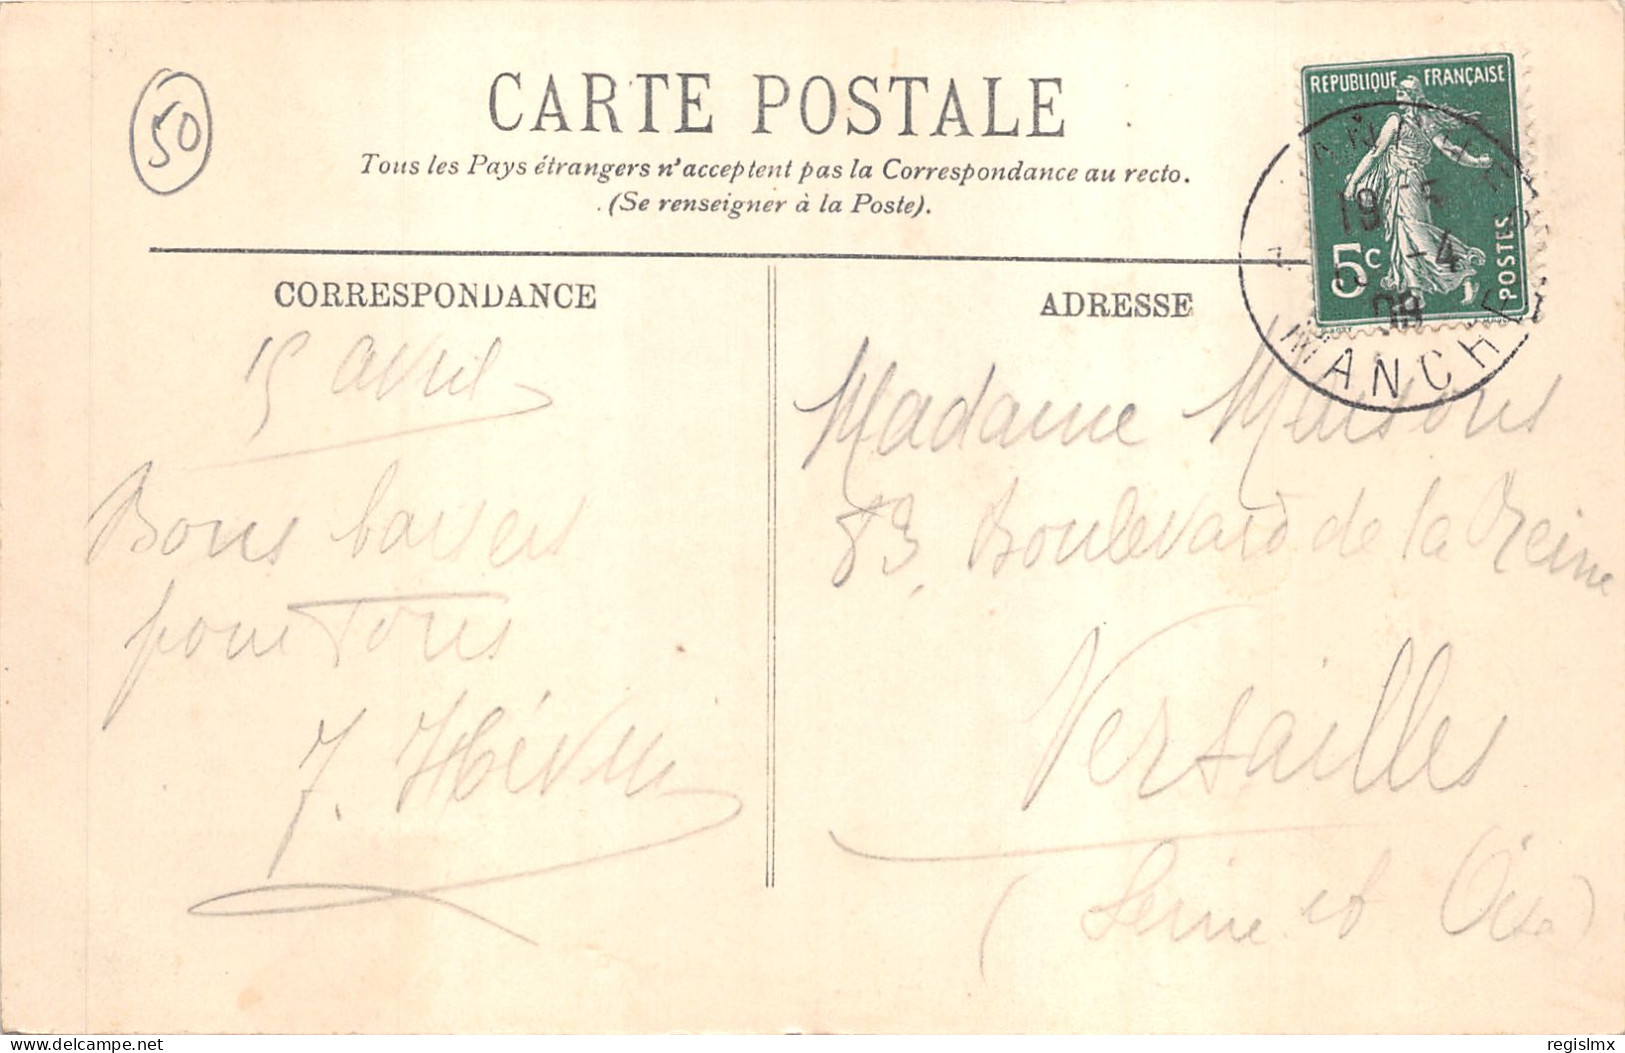 50
CARTE POSTALE
Tous les Pays étrangers n'acceptent pas la Correspondance au recto.
(Se renseigner à la Poste).
REPUBLIQUE FRANÇAISE
5c
POSTES
19 -5
-4
08
MANCHE
CORRESPONDANCE
15 avril
Bons baisers
pour Tous
ADRESSE
Madame
83, Boulevard de la Reine
Versailles
(Seine et Oise)
delcampe.net
regislmx